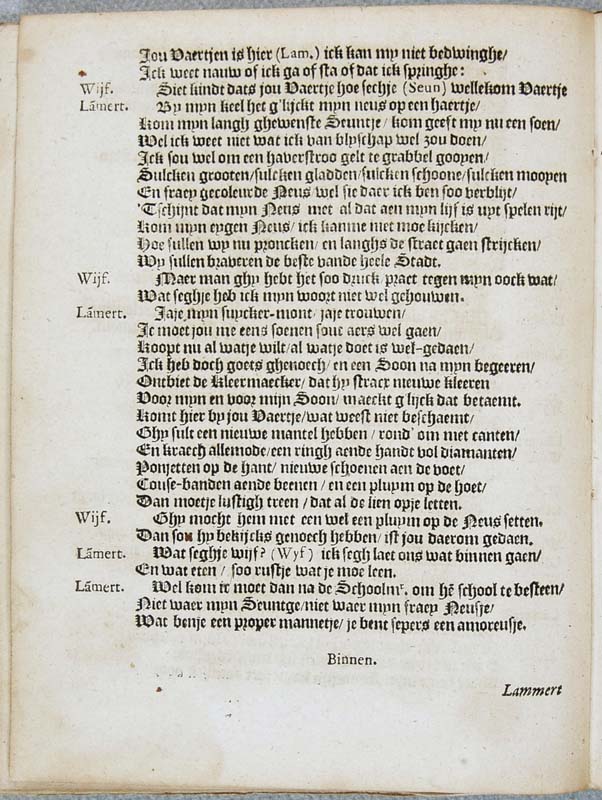 Jou Vaertjen is hier (Lam.) ick kan my niet bedwinghe/
Ick weet nauw of ick ga of sta of dat ick springhe:
Wijf. Siet kindt dats jou Vaertje hoe sechje (Seun) wellekom Vaertje
Lam̄ert. By myn keel het g'lijckt myn neus op een haertje/
Kom myn langh ghewenste Seuntje/ kom geest my nu een soen/
Wel ick weet niet wat ick van blyschap wel zou doen/
Ick sou wel om een haverstroo gelt te grabbel gooyen/
Sulcken grooten/sulcken gladden/sulcken schoone/sulcken mooyen
En fraey gecoleurde Neus wel sie daer ick ben soo verblijt/
'Tschijnt dat myn Neus met al dat aen myn lijf is uyt spelen rijt/
Kom myn eygen Neus/ ick kanme niet moe kijcken/
Hoe sullen wy nu proncken/ en langhs de straet gaen strijcken/
Wy sullen braveren de beste vande heele Stadt.
Wijf. Maer man ghy hebt het soo druck praet tegen myn oock wat/
Wat seghje heb ick myn woort niet wel gehouwen.
Lam̄ert. Jaje myn suycker-mont/ jaje trouwen/
Je moet jou me eens soenen souw aers wel gaen/
Koopt nu al watje wilt/al watje doet is wel-gedaen/
Ick heb doch goets ghenoech/ en een Soon na myn begeeren/
Ontbiet de Kleermaecker/ dat hy stracx nieuwe kleeren
Voor myn en voor mijn Soon/ maeckt g'lijck dat betaemt.
Komt hier by jou Vaertje/wat weest niet beschaemt/
Ghy sult een nieuwe mantel hebben/ rond' om met canten/
En kraech allemode/een ringh aende handt vol diamanten/
Ponjetten op de hant/ nieuwe schoenen aen de voet/
Couse-banden aende beenen/ en een pluym op de hoet/
Dan moetje lustigh treen/ dat al de lien opje letten.
Wijf. Ghy mocht hem met een wel een pluym op de Neus setten.
Dan sou hy bekijcks genoech hebben/ ist jou daerom gedaen.
Lam̄ert. Wat seghje wijf? (Wyf) ick segh laet ons wat binnen gaen/
En wat eten/ soo rustje wat je moe leen.
Lam̄ert. Wel kom ir moet dan na de Schoolmr. om hē school te besteen/
Niet waer myn Seuntge/niet waer myn fraey Neusje/
Wat benje een proper mannetje/ je bent sepers een amoreusje.
Binnen.
Lammert